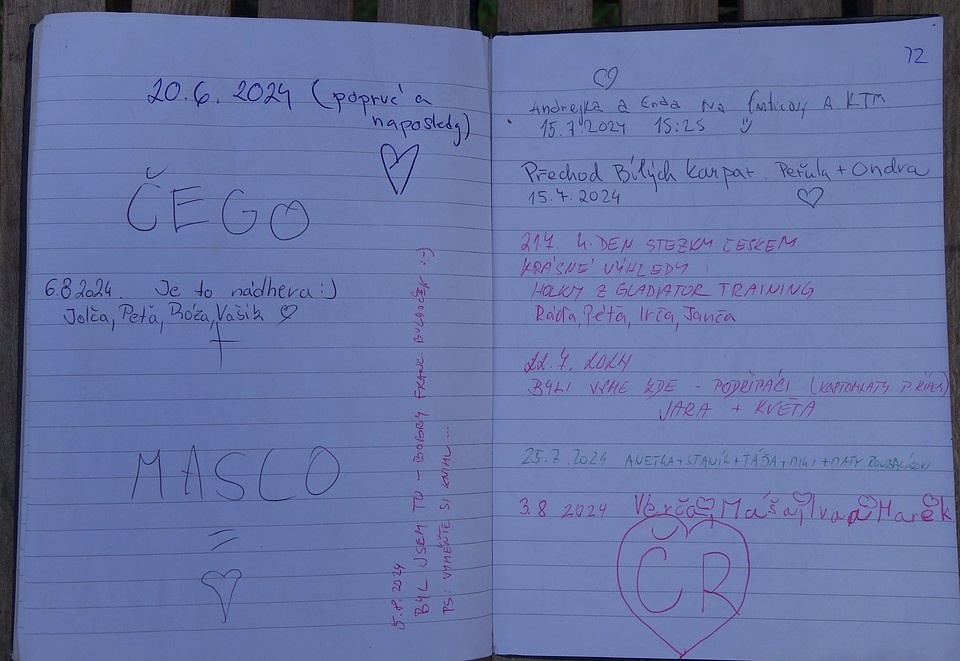 20.6. 2024 (poprvé a
naposledy)
ČEGO
6.8 2024. Je to nádhera :)
Jolča, Peťa, Róza, Vašík
MASCO
=
5.8.2024
BYL JSEM TU - BOBBY FRANC. BULDOČEK :-)
PS: VYMĚŇTE SI KNIHU...
72
Andrejka a Enda na A KTM
15.7.2024 15:25
Přechod Bílých Karpat. Peťula + Ondra
15.7.2024
217. 4. DEN STEZKY ČESKEM
KRÁSNÉ VÝHLEDY
HOLKY Z GLADIATOR TRAINING
Raďa, Péťa, Irča, Janča
22.7. 2024
BYLI JSME ZDE - PODŘIPÁCI (KOSTOMLATY P. ŘÍPEM)
JARA + KVĚTA
25.7.2024 ANETKA + STANÍK + TÁŠA + MIKI + MATY
3.8 2024 Verča, Máša, Iva a Marek
ČR